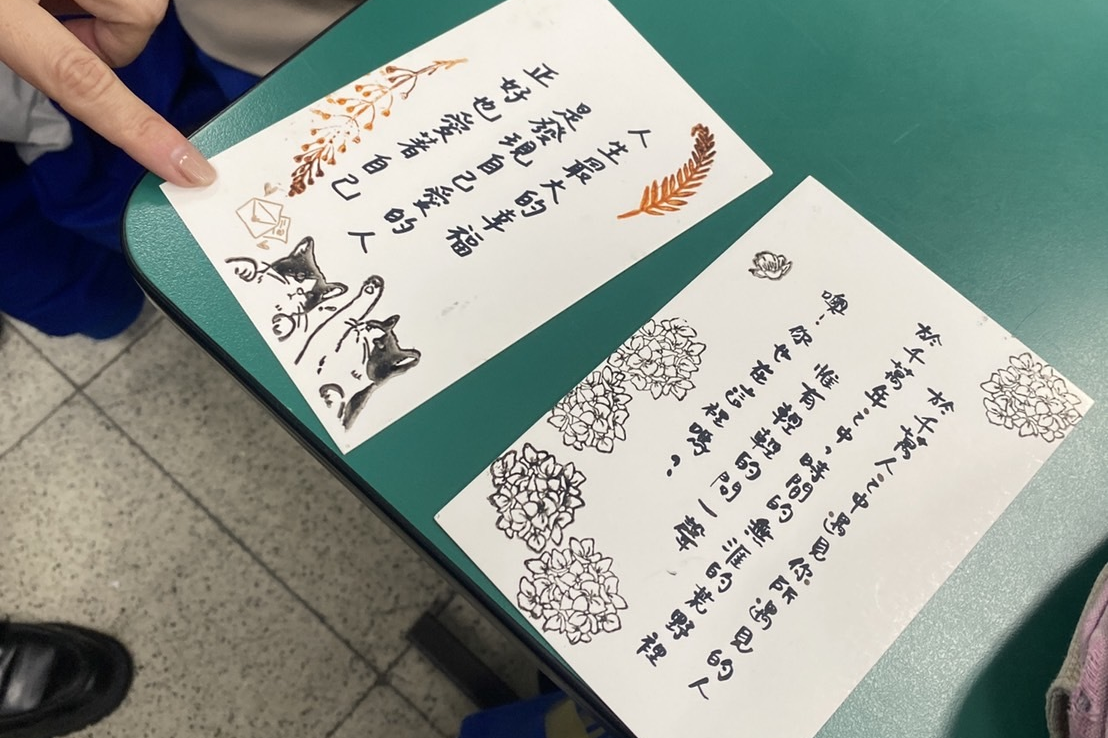 人生最大的幸福
是發現自己愛的人
正好也愛著自己
於千萬人之中遇見你所遇見的人
於千萬年之中，時間的無涯的荒野裡
惟有輕輕的問一聲
噢！你也在這裡嗎？